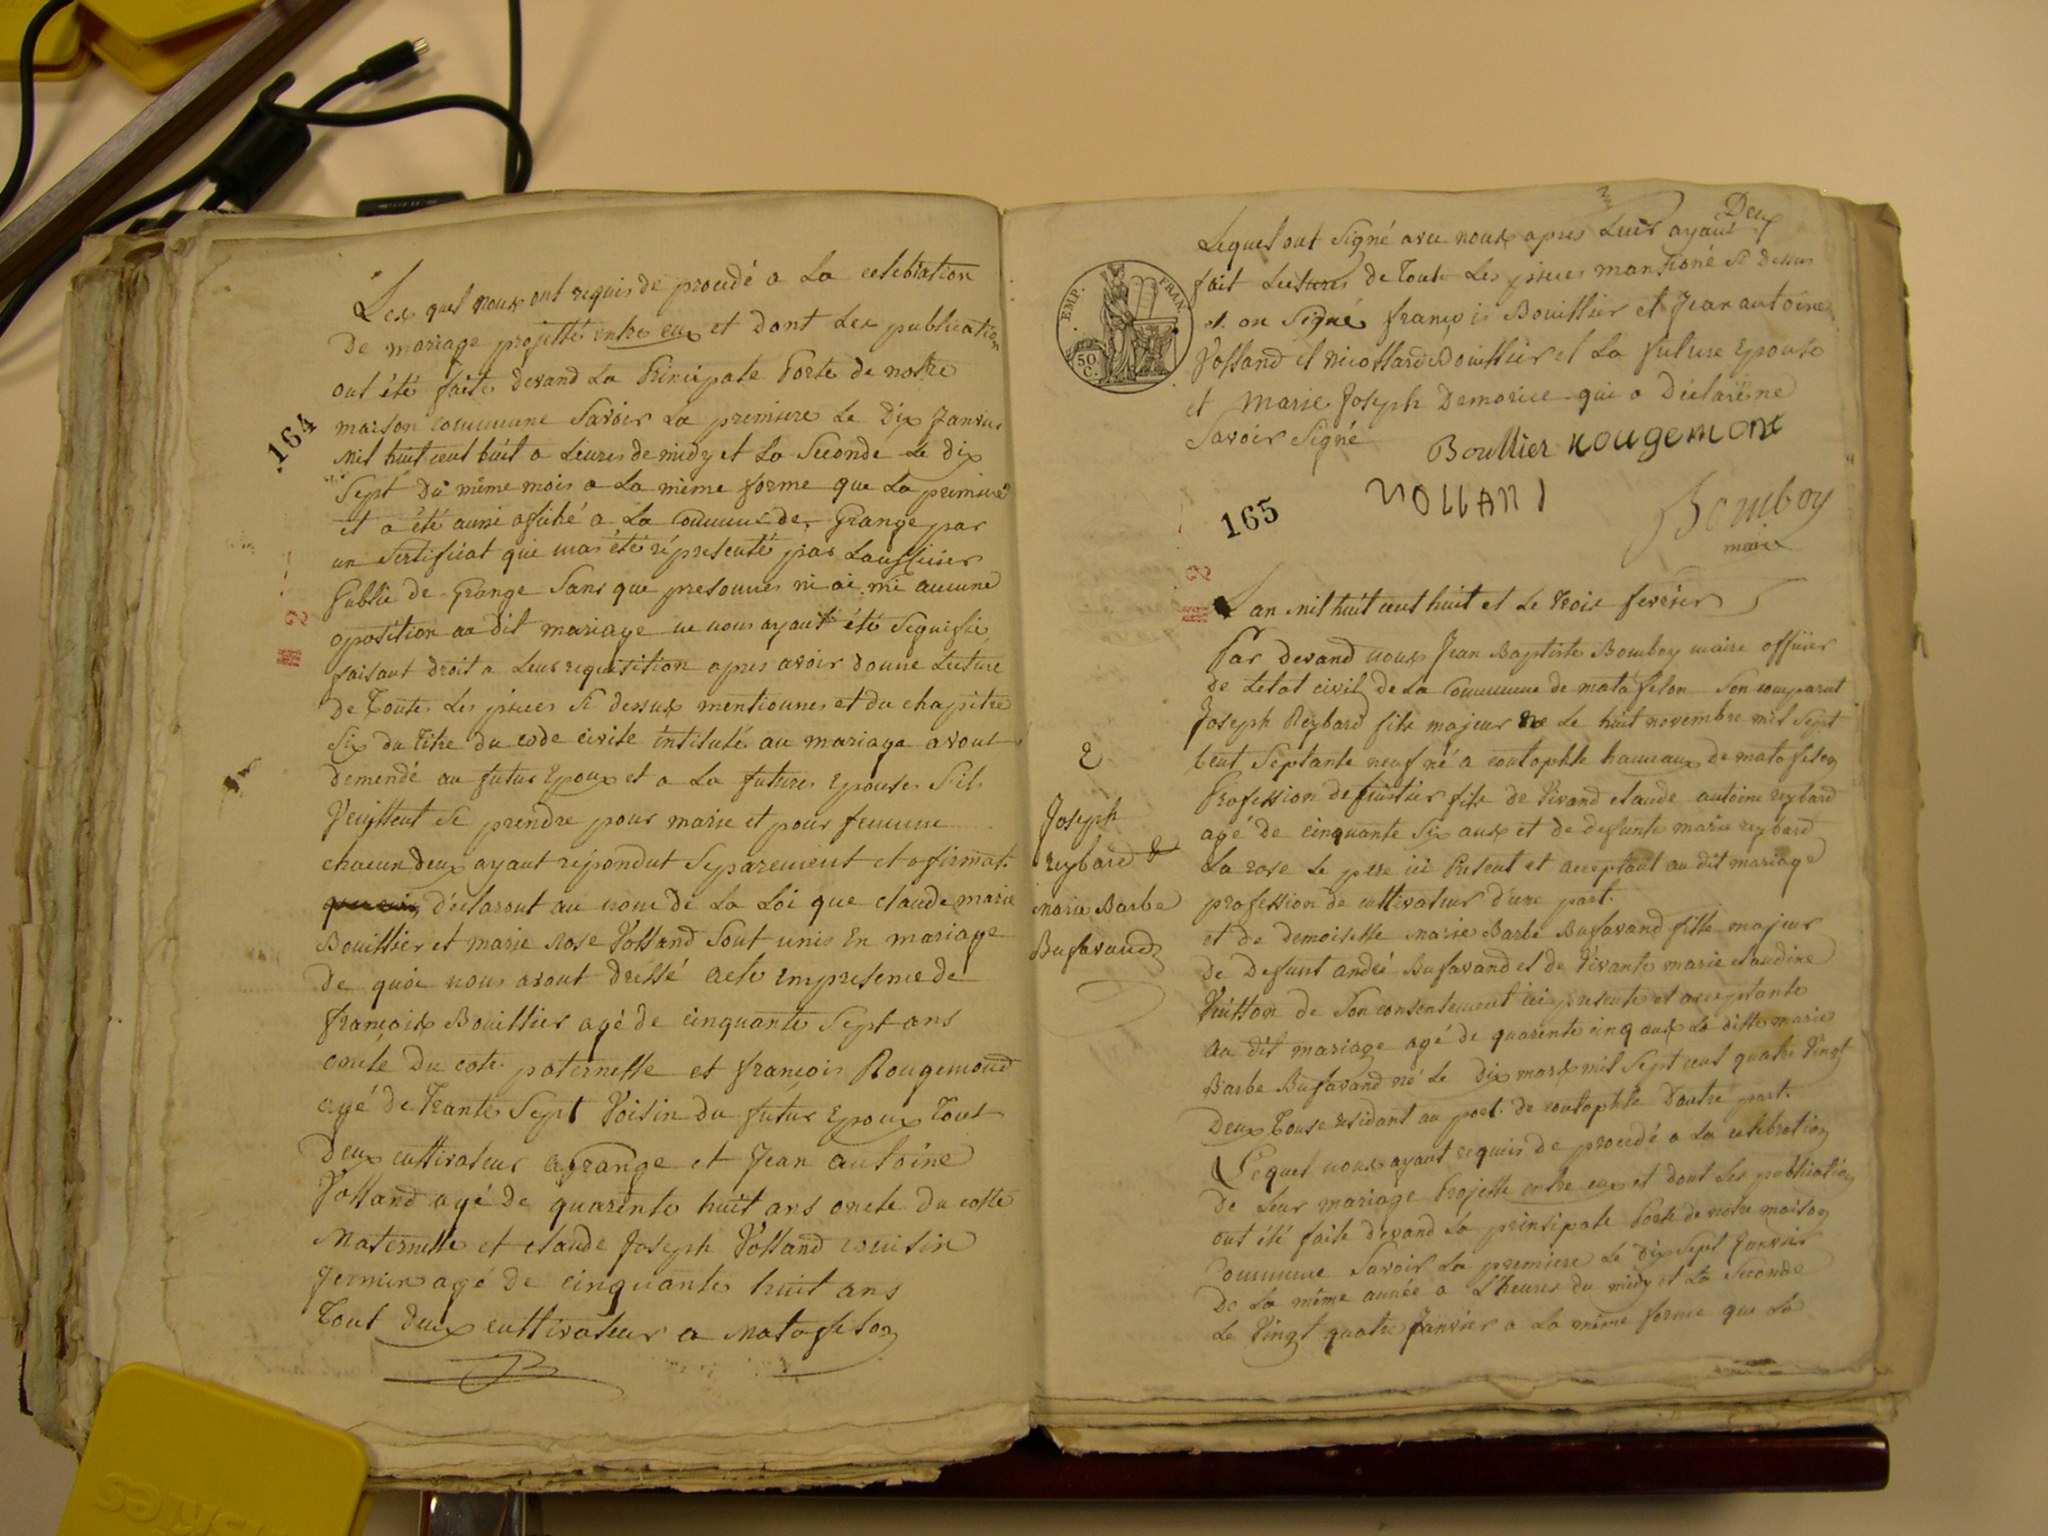 Les quel nous ont requis de procedé a La celebration
De mariage projetté entre eux et dont Les publication
ont été faite devand La Principale Porte de notre
maison commune Savoir La premiere Le Dix Janvier
164
mil huit cent huit a Leures de midy et La Seconde Le dix
Sept Du même mois a La même forme que La premiere
et a été aussi afiché a La Commune de Grange par
un Sertificat qui mas été réprésenté par Laufficier
Public de Grange Sans que presonnes ni aie mie aucune
oposition au dit mariage ne nous ayant été Seguifie
2
faisant droit a Leur requisition apres avoir donne Lecture
De Toutes Les pieces Si dessus mentionnes et du chapitre
Six du titre du code civile intitulé au mariage avont
demendé au futur Epoux et a La future Epouse Sils
Veuillent Se prendre pour marie et pour femme
chacun deux ayant répondut Separement et afirmat.
déclaront au nom de La Loi que claude marie
Bouillier et marie Rose Volland Sont unis En mariage
De quoi nous avont dressé acte empresence de
françois Bouillier agé de cinquante Sept ans
oncle Du cote paternelle et françois Rougemond
agé de Trante Sept Voisin du futur Epoux Tout
Deux cultivateur a grange et Jean antoine
Volland agé de quarente huit ans oncle du cotte
Maternelle et claude Joseph Volland cousin
germin agé de cinquante huit ans
Tout deux cultivateur a Matafelon
Deux
Lequel ont Signé avec nous apres Leur ayant
fait Lectures de Toute Les pieces mansioné Si dessus
EMP. FRAN.
50 C.
et on Signé françois Bouillier et Jean antoine
Volland et Bouillier et La future Epouse
et Marie Joseph Demorice qui a Déclaré ne
Savoir Signé
Boullier Rougemont
VOLLAND
Bomboy
maire
165
2
Lan mil huit cent huit et Le trois fevérier
Par devand nous Jean Baptiste Bomboy maire officier
de Letat civil de La Commune de matafelon Son comparut
Joseph Reybard fils majeur né Le huit novembre mil Sept
Cent Septante neuf né a coutophle hameaux de matafelon
2
Joseph
reybard &
marie Barbe
Bufavand
Profession de fils de Vivand claude antoine reybard
agé de cinquante Six ans et de defunte marie reybard
La rose Le pere ici Présent et acceptant au dit mariage
profession de cultivateur d'une part.
et de demoiselle Marie Barbe Bufavand fille majeur
de Defunt andré Bufavand et de Vivante marie claudine
Vuitton de Son consentement ici presente et acceptante
au dit mariage agé de quarente cinq ans La ditte marie
Barbe Bufavand né Le Dix mars mil Sept cent quatre Vingt
Deux Tous residant au port de coutophle Dautre part.
Lequel nous ayant requis de procedé a La celebration
De Leur mariage Projette entre eux et dont Les publication
ont été faite devand La prinsipale Porte de notre maison
Commune Savoir La premiere Le dix Sept Janvier
De La même année a L'heures du midy et La Seconde
Le Vingt quatre Janvier a La même forme que La